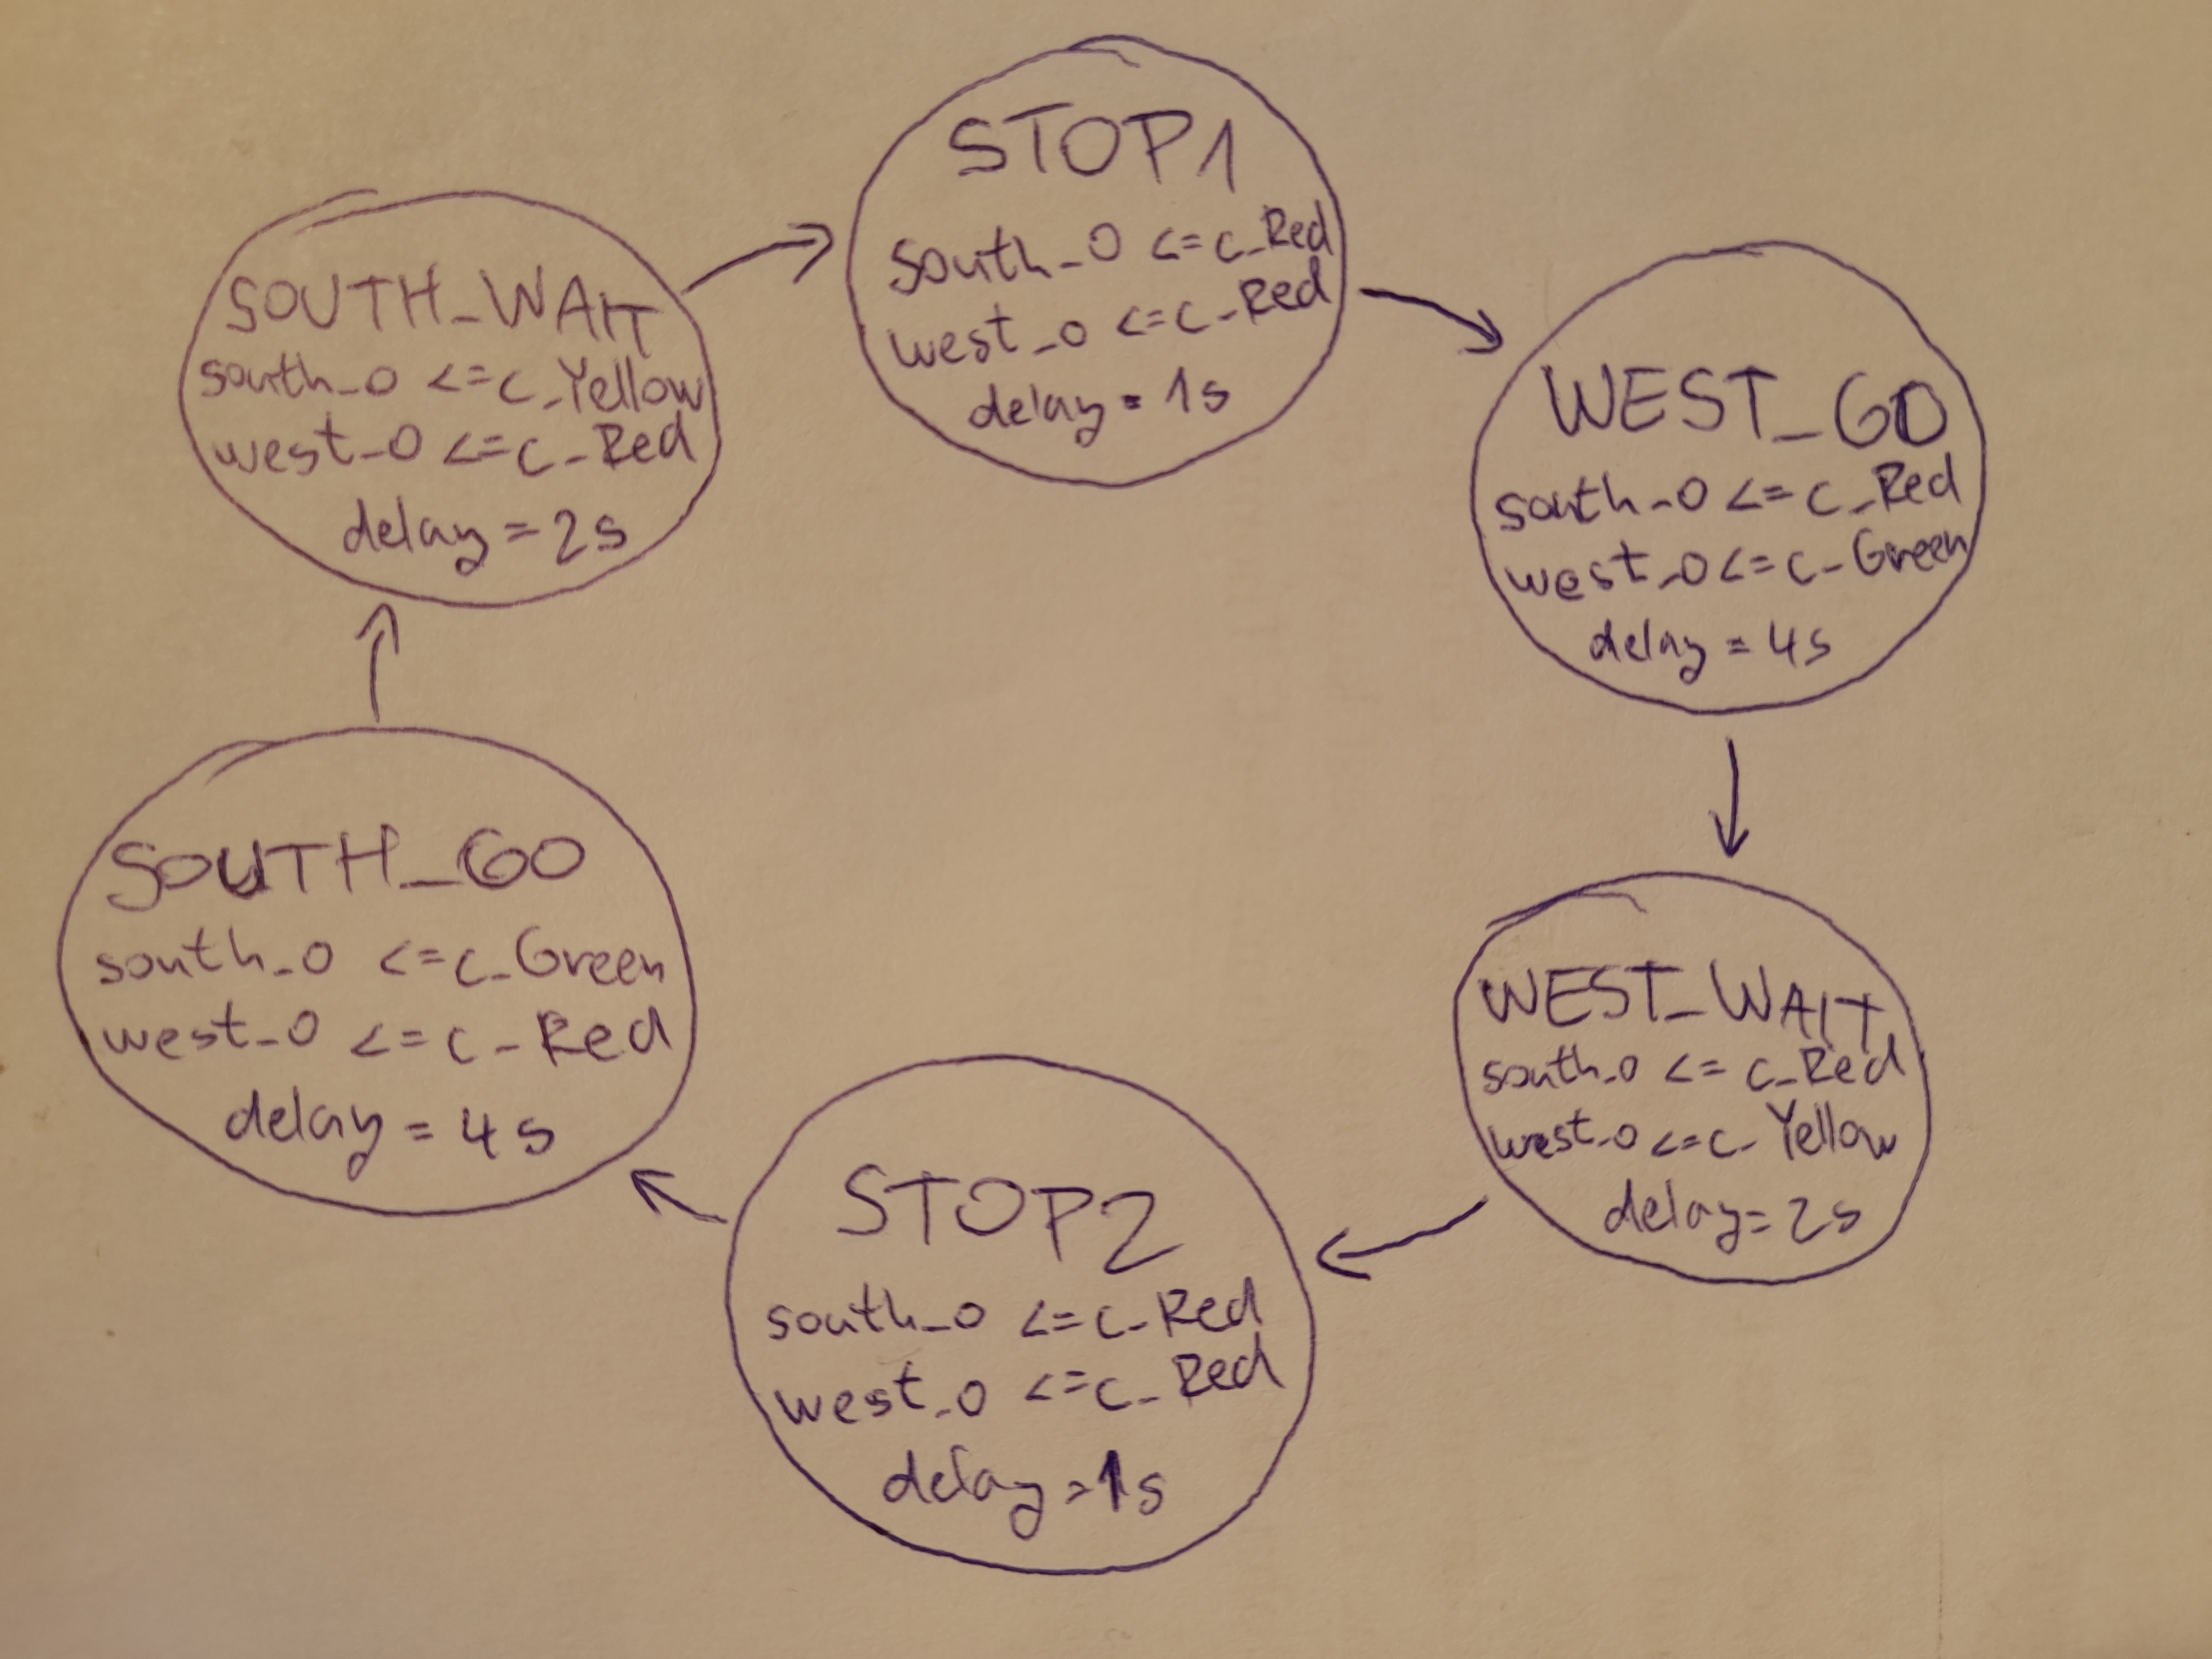 STOP1
south_o <= c_Red
west_o <= c_Red
delay = 1s
WEST_GO
south_o <= c_Red
west_o <= c_Green
delay = 4s
WEST_WAIT
south_o <= c_Red
west_o <= c_Yellow
delay = 2s
STOP2
south_o <= c_Red
west_o <= c_Red
delay = 1s
SOUTH_GO
south_o <= c_Green
west_o <= c_Red
delay = 4s
SOUTH_WAIT
south_o <= c_Yellow
west_o <= c_Red
delay = 2s